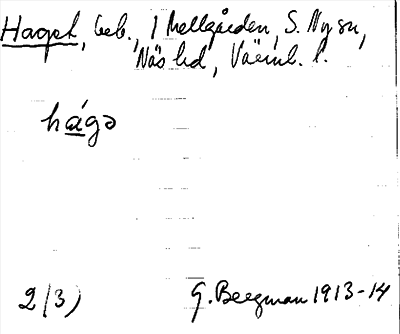 Haget, beb., 1 Mellgården, S. Ny sn,
Näs hd, Värml. l.
hágə
2(3)
G. Bergman 1913-14